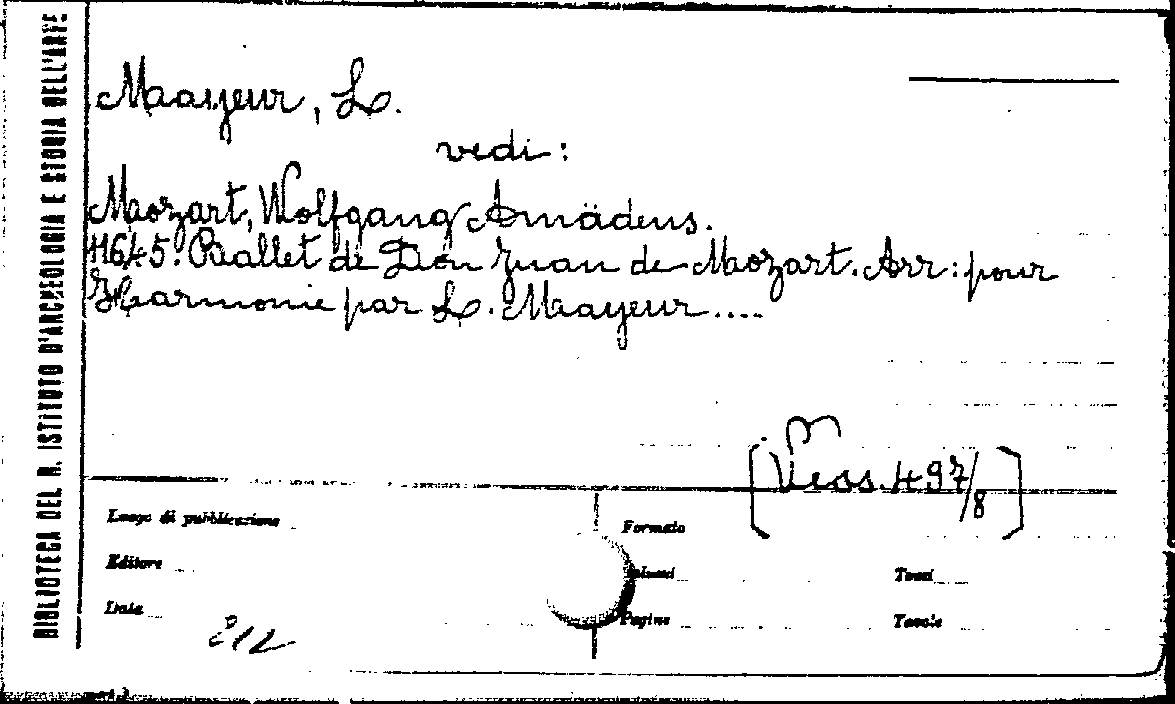 BIBLIOTECA DEL R. ISTITUTO D'ARCHEOLOGIA E STORIA DELL'ARTE
Mayeur, L.
vedi:
Mozart, Wolfgang Amädeus.
11645. Ballet de Don Juan de Mozart. Arr: pour
Harmonie par L. Mayeur....
[Vess. 497/8]
Luogo di pubblicazione
Formato
Editore
Volumi
Tomi
Data
Pagine
Tavole
212
mod. 3